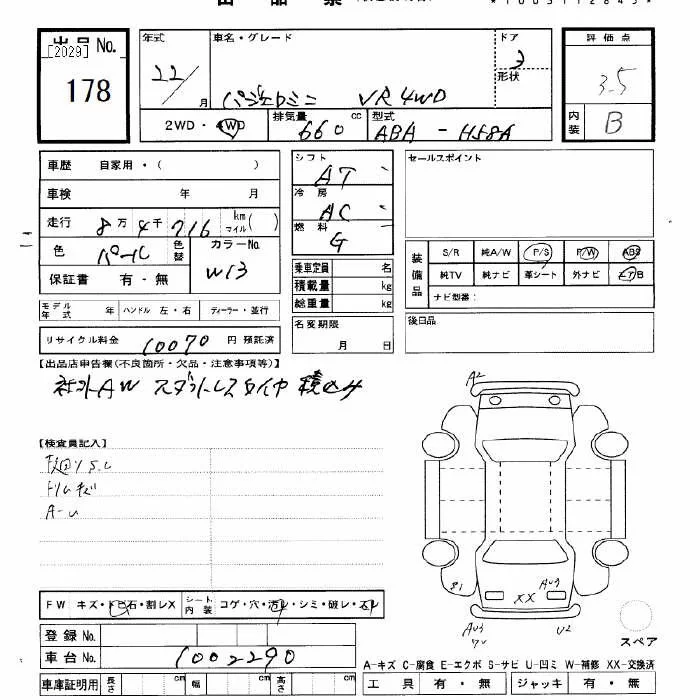 出品票
*1003112843*
[2029]
出品 No.
178
年式
22/
月
車名・グレード
パジェロミニ VR 4WD
ドア
3
形状
2WD・4WD
排気量
660 cc
型式
ABA - H58A
評価点
3.5
内装
B
車歴 自家用・( )
車検 年 月
走行 8万4千716 km マイル( )
色 パール 色替 カラーNo. W13
保証書 有・無
モデル年式 年 ハンドル 左・右 ディーラー・並行
リサイクル料金 10070 円 預託済
シフト
AT
冷房
AC
燃料
G
乗車定員 名
積載量 kg
総重量 kg
名変期限
月 日
セールスポイント
装備品
S/R 純A/W P/S P/W ABS
純TV 純ナビ 革シート 外ナビ エアB
ナビ型番:
後日品
【出品店申告欄(不良箇所・欠品・注意事項等)】
AW スタットレスタイヤ 積込み
【検査員記入】
トリムキズ
A-U
A2
81
XX
AU3
AU3
U2
FW キズ・トビ石・割レX シート内装 コゲ・穴・汚レ・シミ・破レ・スレ
登録 No.
車台 No. 1002290
車庫証明用 長さ cm 幅 cm 高さ cm
スペア
A-キズ C-腐食 E-エクボ S-サビ U-凹ミ W-補修 XX-交換済
工具 有・無 ジャッキ 有・無